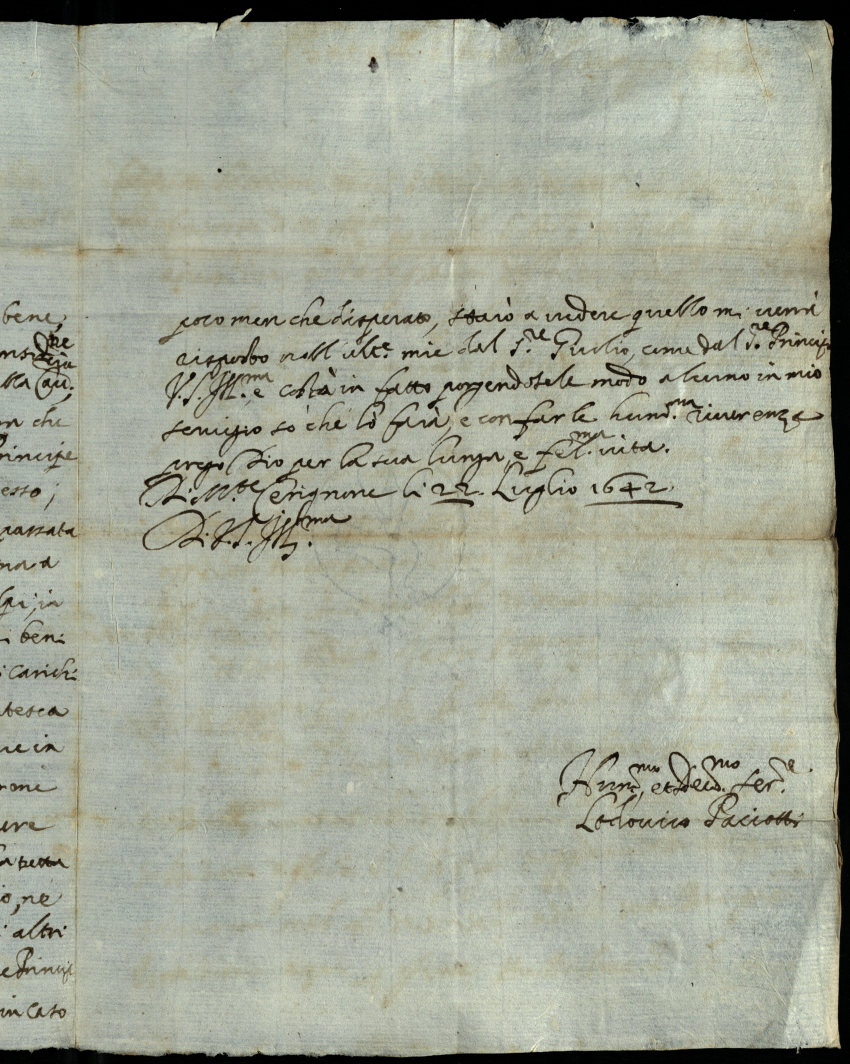 bene,
che
lla qu:
n che
rincipe
esso;
passata
ma a
in
i ben:
i carich:
tesca
ue in
roni
ure
io, ne
i altri
e Princip
in caso
poco men che disperato, starò a vedere quello mi verrà
risposto nell ult.e mie dal S.re Giulio, come dal S.re Princip
V.S. Ill.ma, e costà in fatto porgendosele modo alcuno in mio
servigio so che lo farà, e con farle hum.ma riverenza
prego Dio per la sua lunga, e fel.ma vita.
Di M.te Cerignone li 22. Luglio 1642.
Di V.S. Ill.ma
Hum.mo et D.mo ser.e
Lodovico Paciotti